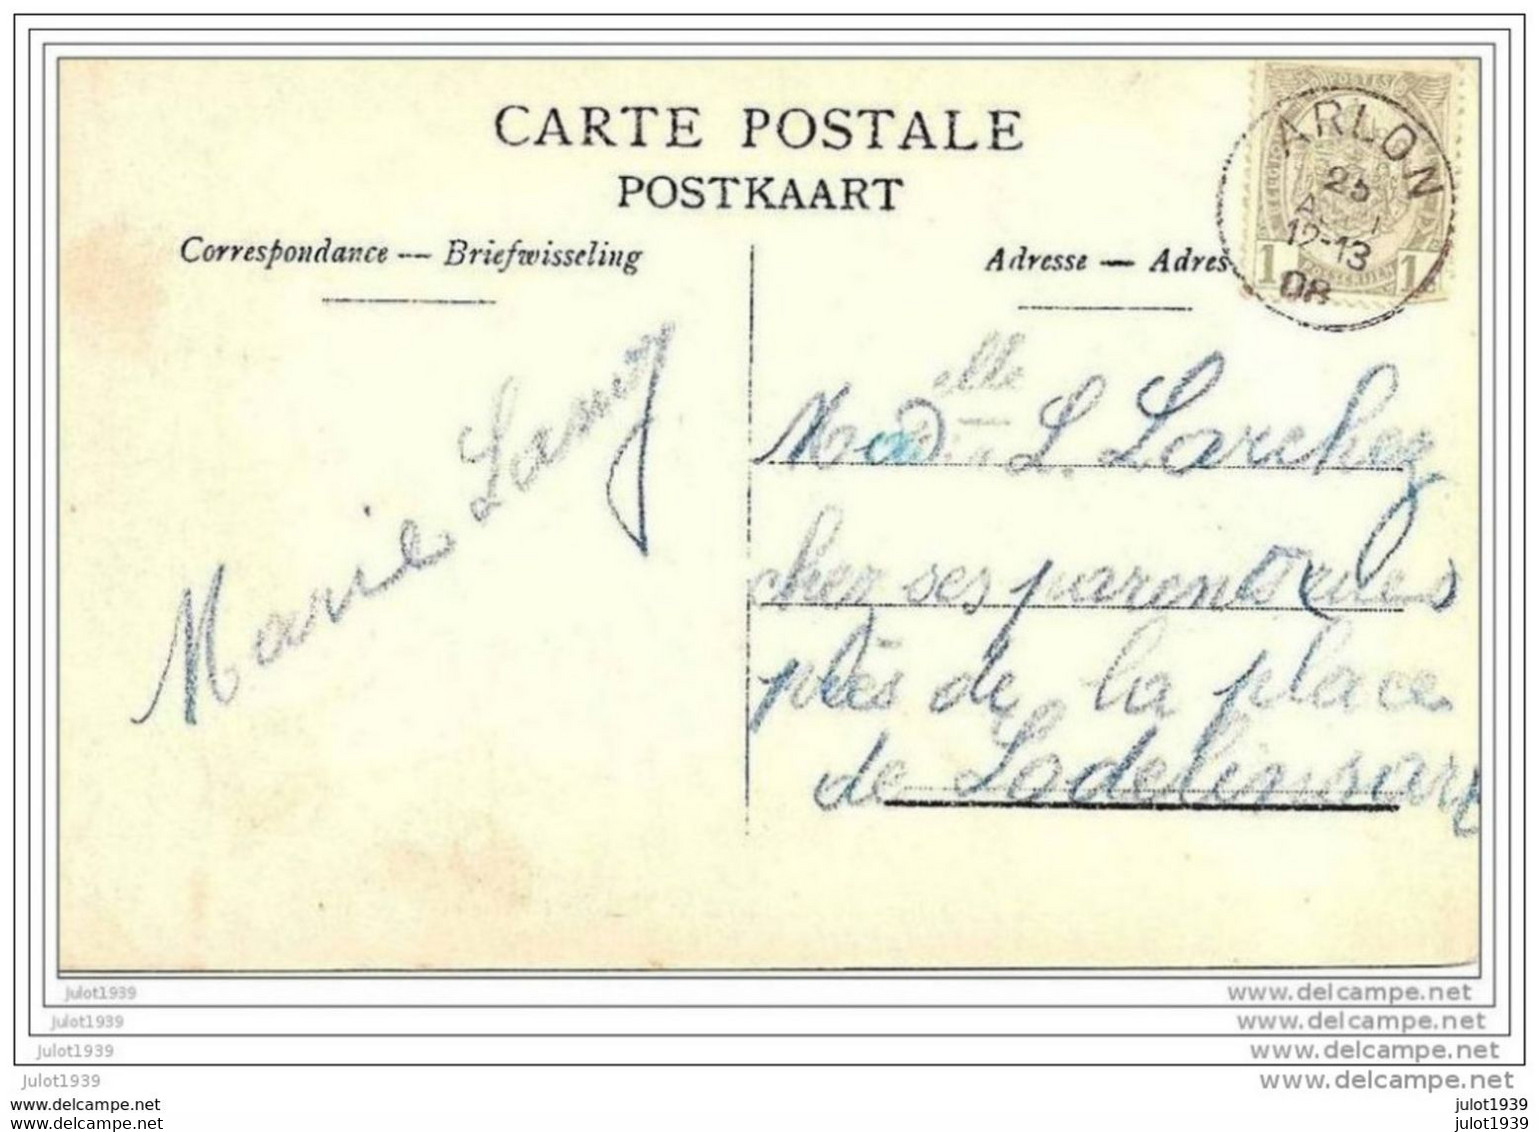 CARTE POSTALE
POSTKAART
Correspondance — Briefwisseling
Adresse — Adres
POSTES
ARLON
25
12-13
08
1 1
Marie Lamy
elle
Mad L. Larchez
chez ses parents
près de la place
de Lodelinsart
julot1939
www.delcampe.net
julot1939
www.delcampe.net
julot1939
www.delcampe.net
julot1939
www.delcampe.net
www.delcampe.net
julot1939
www.delcampe.net
julot1939